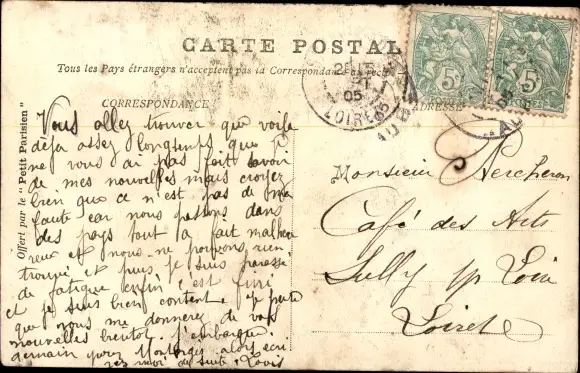 CARTE POSTALE
Tous les Pays étrangers n'acceptent pas la Correspondance au recto
CORRESPONDANCE
ADRESSE
Offert par le "Petit Parisien"
Vous allez trouver que voila
deja assez longtemps que je
ne vous ai pas fait savoir
de mes nouvelles mais croyez
bien que ce n'est pas de ma
faute car nous passons dans
des pays tout a fait malheu
reux et nous ne pouvons rien
trouver et puis je suis
de fatigue enfin c'est fini
et je suis bien content. Je
que vous me donnerez de vos
nouvelles bientot. J'embarque
demain pour Montargis alors ecri
vez moi de suite Louis
Monsieur Percheron
Café des Arts
Sully s/ Loire
Loiret
5
5
05
LOIRET